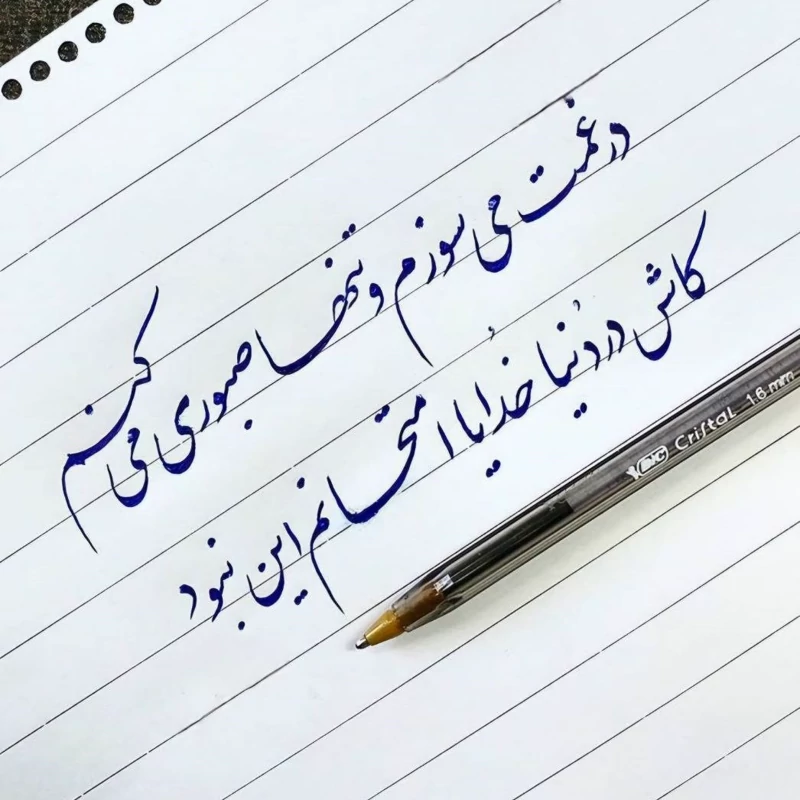 در غمت می سوزم و تنها صبوری می کنم
کاش در دُنیا خُدایا امتحانم این نبود
BIC Cristal 1.6 mm